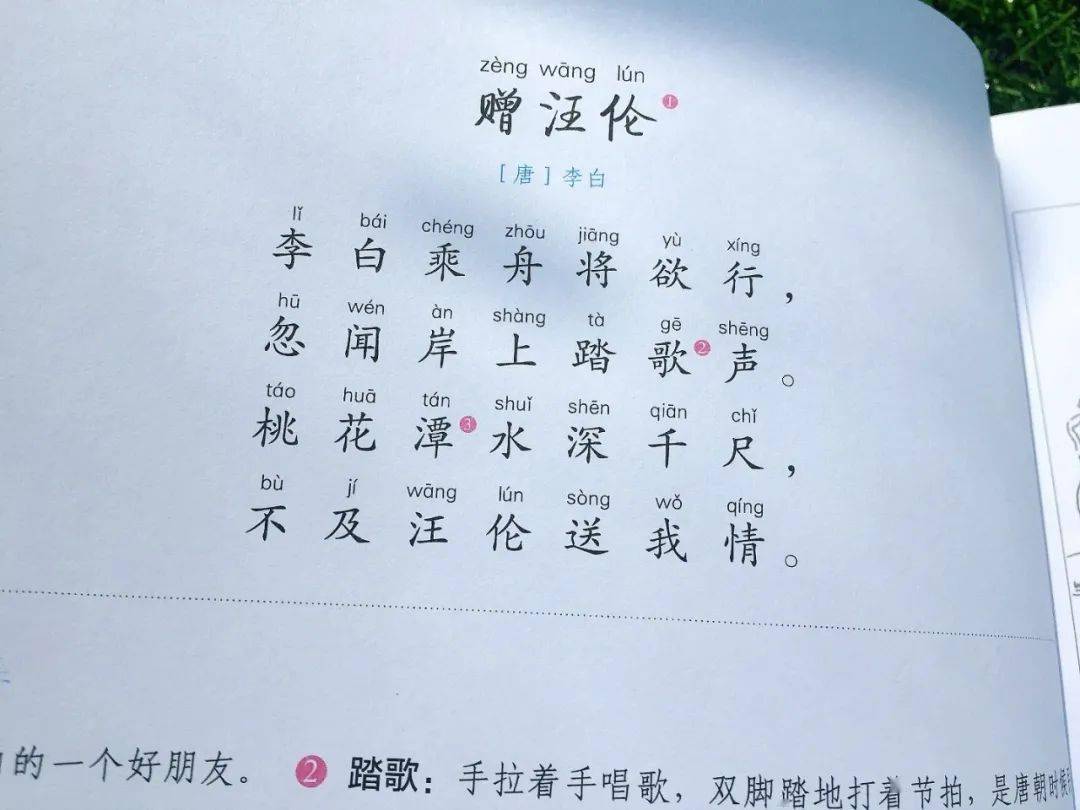 zèng wāng lún
赠汪伦①
[唐]李白
lǐ bái chéng zhōu jiāng yù xíng
李白乘舟将欲行，
hū wén àn shàng tà gē shēng
忽闻岸上踏歌②声。
táo huā tán shuǐ shēn qiān chǐ
桃花潭③水深千尺，
bù jí wāng lún sòng wǒ qíng
不及汪伦送我情。
的一个好朋友。 ② 踏歌：手拉着手唱歌，双脚踏地打着节拍，是唐朝时候